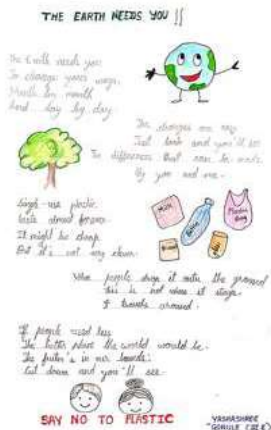 THE EARTH NEEDS YOU !!
The Earth needs you
To change your ways.
Month by month
And day by day.
The changes are easy
Just look and you'll see
The differences that can be made
By you and me.
Single-use plastic
Lasts almost forever.
It might be cheap
But it's not very clever.
Milk
Bottle
Plastic Bag
When people drop it onto the ground
this is not where it stays.
It travels around.
If people used less
The better place the world would be.
The future's in our hands:
Cut down and you'll see.
SAY NO TO PLASTIC
YASHASHREE